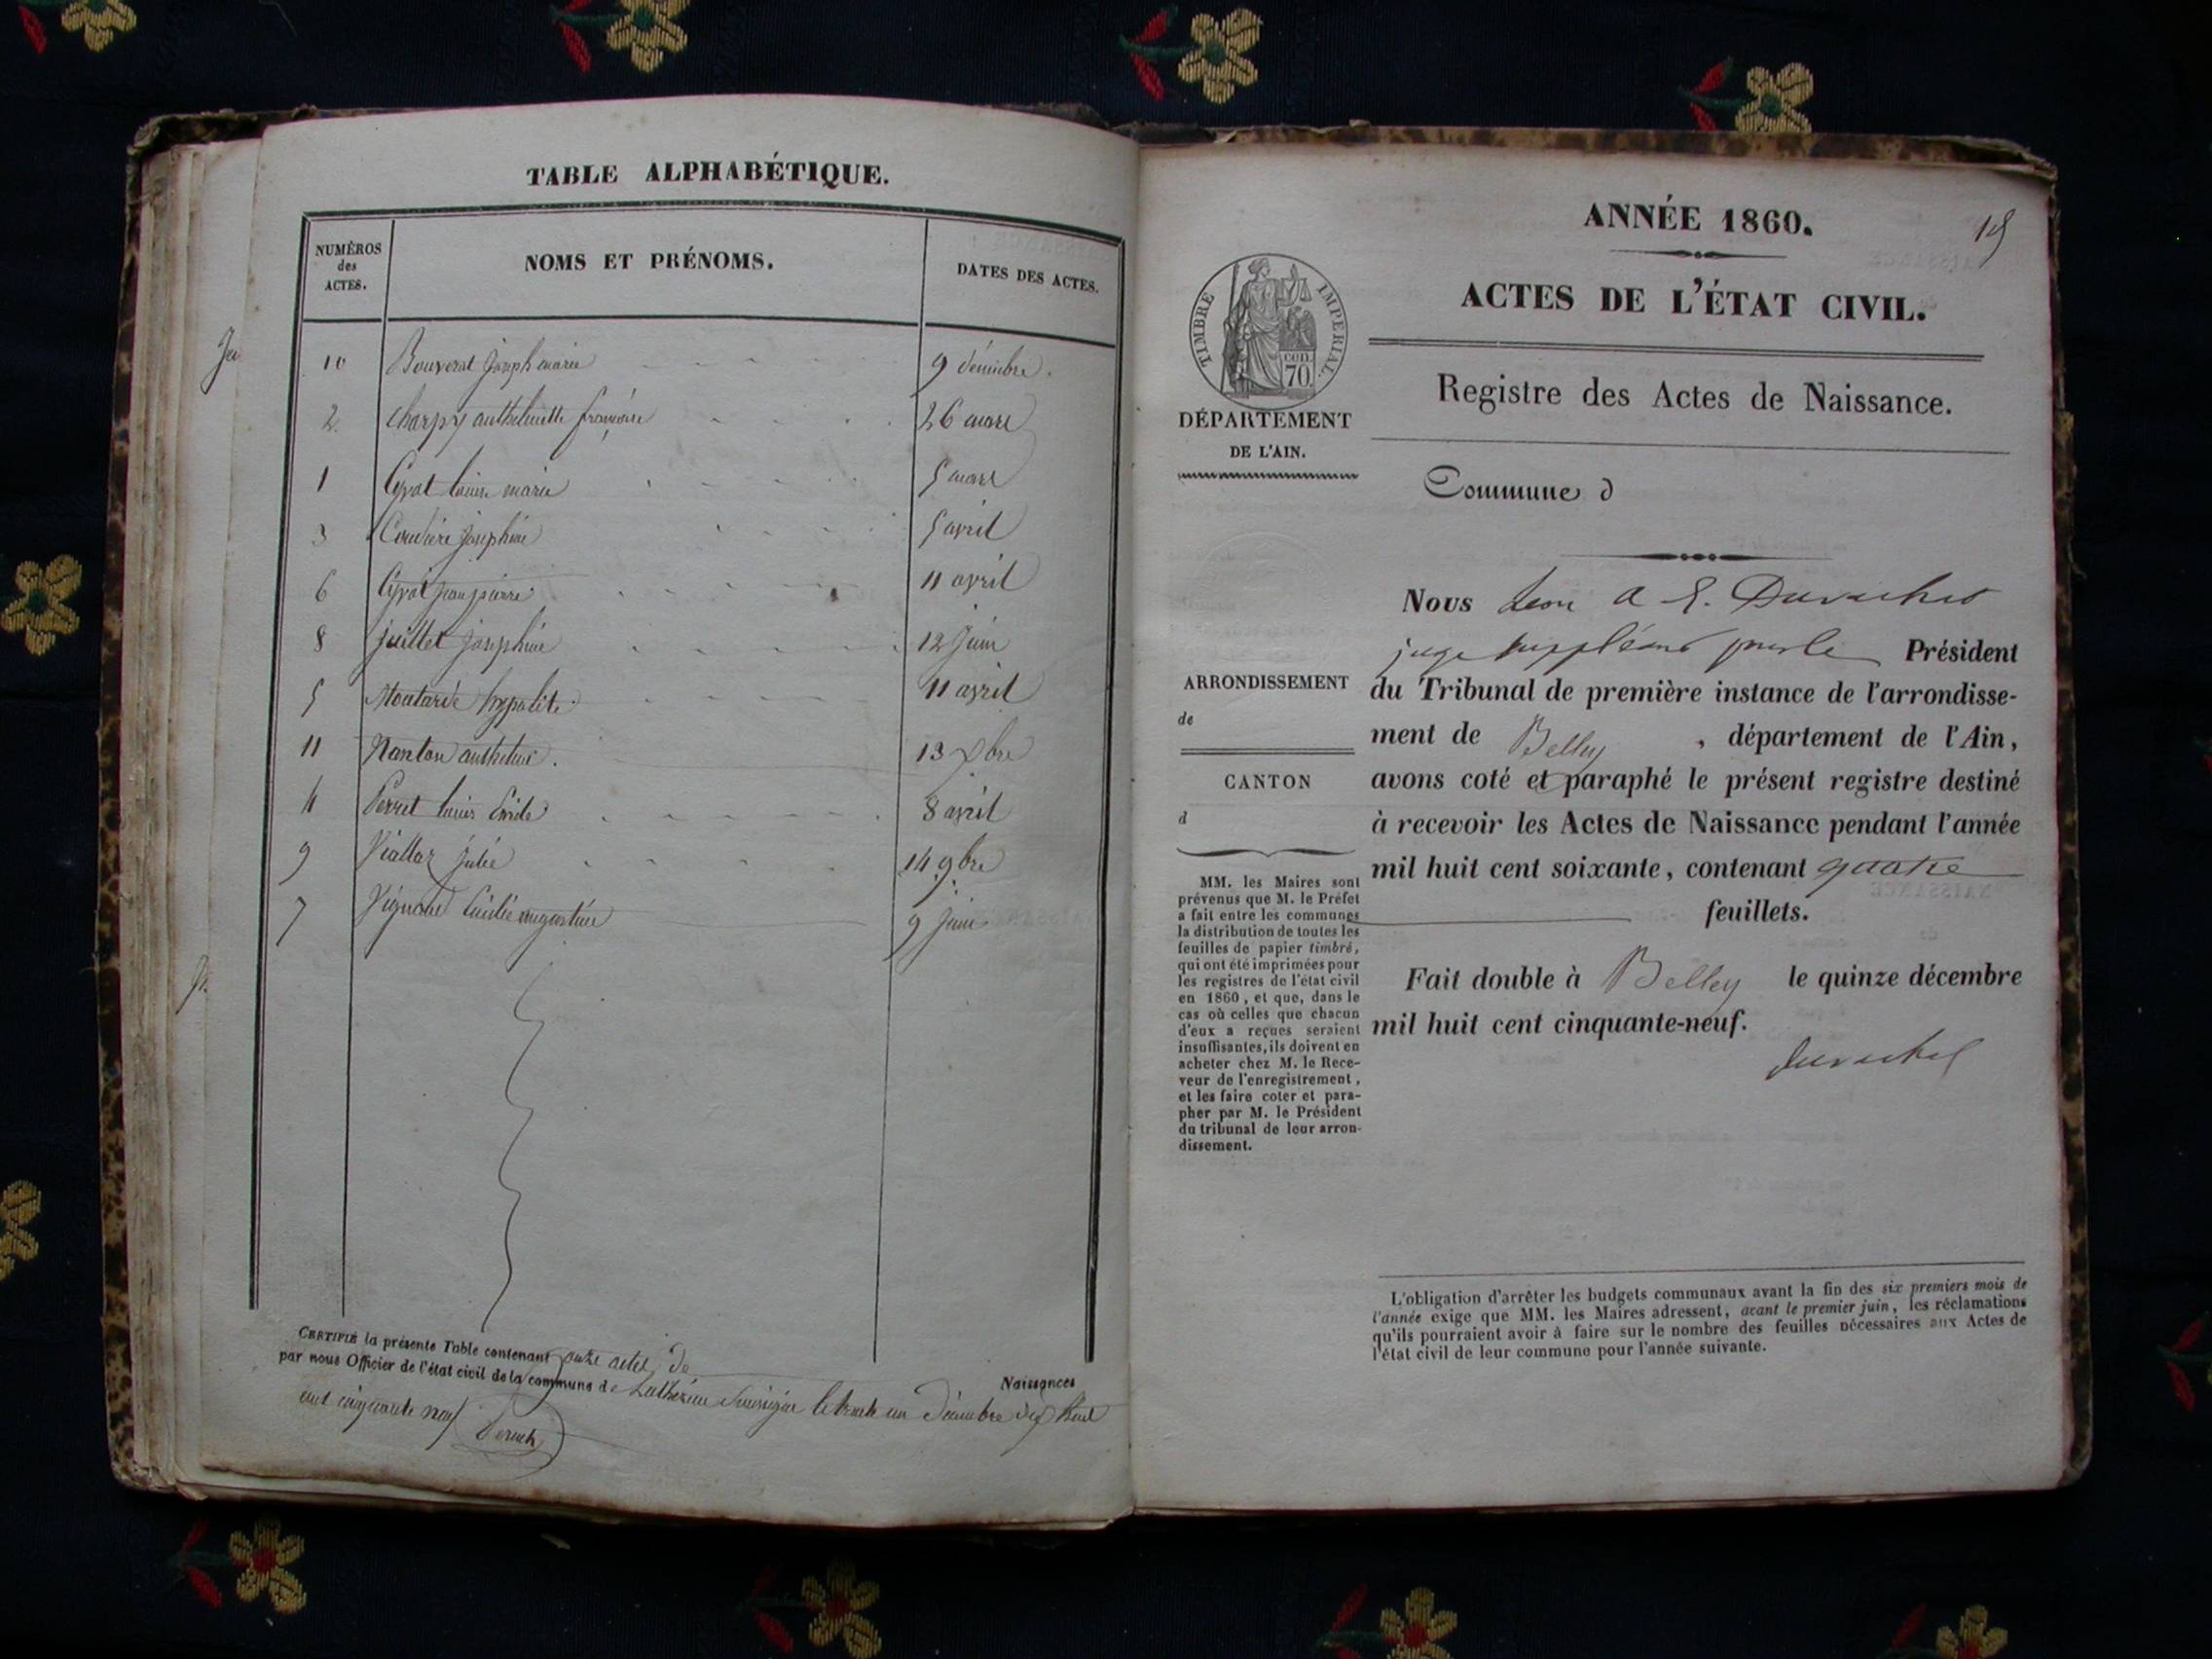 TABLE ALPHABÉTIQUE.
NUMÉROS des ACTES. NOMS ET PRÉNOMS. DATES DES ACTES.
10 Bouverat Joseph marie 9 décembre.
2 Charpy anthelmette françoise 26 mars
1 Cyvat louise marie 5 mars
3 Joséphine 5 avril
6 Cyvat jean pierre 11 avril
8 juillet joséphine 12 juin
5 Moutarde hypolite 11 avril
11 Nanton anthelme. 13 Xbre
4 Perret louis Emile 8 avril
9 Viallaz julie 14 9bre
7 augustine 9 juin
CERTIFIÉ la présente Table contenant onze actes de
Naissances
par nous Officier de l'état civil de la commune de le trente un décembre dix huit
cent cinquante neuf
ANNÉE 1860.
ACTES DE L'ÉTAT CIVIL.
TIMBRE IMPERIAL.
cen.
70.
DÉPARTEMENT
DE L'AIN.
Registre des Actes de Naissance.
Commune d
Nous Leon A E.
juge suppléant pour le Président
ARRONDISSEMENT
de
CANTON
d
du Tribunal de première instance de l'arrondisse-
ment de Belley , département de l'Ain,
avons coté et paraphé le présent registre destiné
à recevoir les Actes de Naissance pendant l'année
mil huit cent soixante, contenant quatre
feuillets.
Fait double à Belley le quinze décembre
mil huit cent cinquante-neuf.
MM. les Maires sont
prévenus que M. le Préfet
a fait entre les communes
la distribution de toutes les
feuilles de papier timbré,
qui ont été imprimées pour
les registres de l'état civil
en 1860, et que, dans le
cas où celles que chacun
d'eux a reçues seraient
insuffisantes, ils doivent en
acheter chez M. le Rece-
veur de l'enregistrement,
et les faire coter et para-
pher par M. le Président
du tribunal de leur arron-
dissement.
L'obligation d'arrêter les budgets communaux avant la fin des six premiers mois de
l'année exige que MM. les Maires adressent, avant le premier juin, les réclamations
qu'ils pourraient avoir à faire sur le nombre des feuilles nécessaires aux Actes de
l'état civil de leur commune pour l'année suivante.